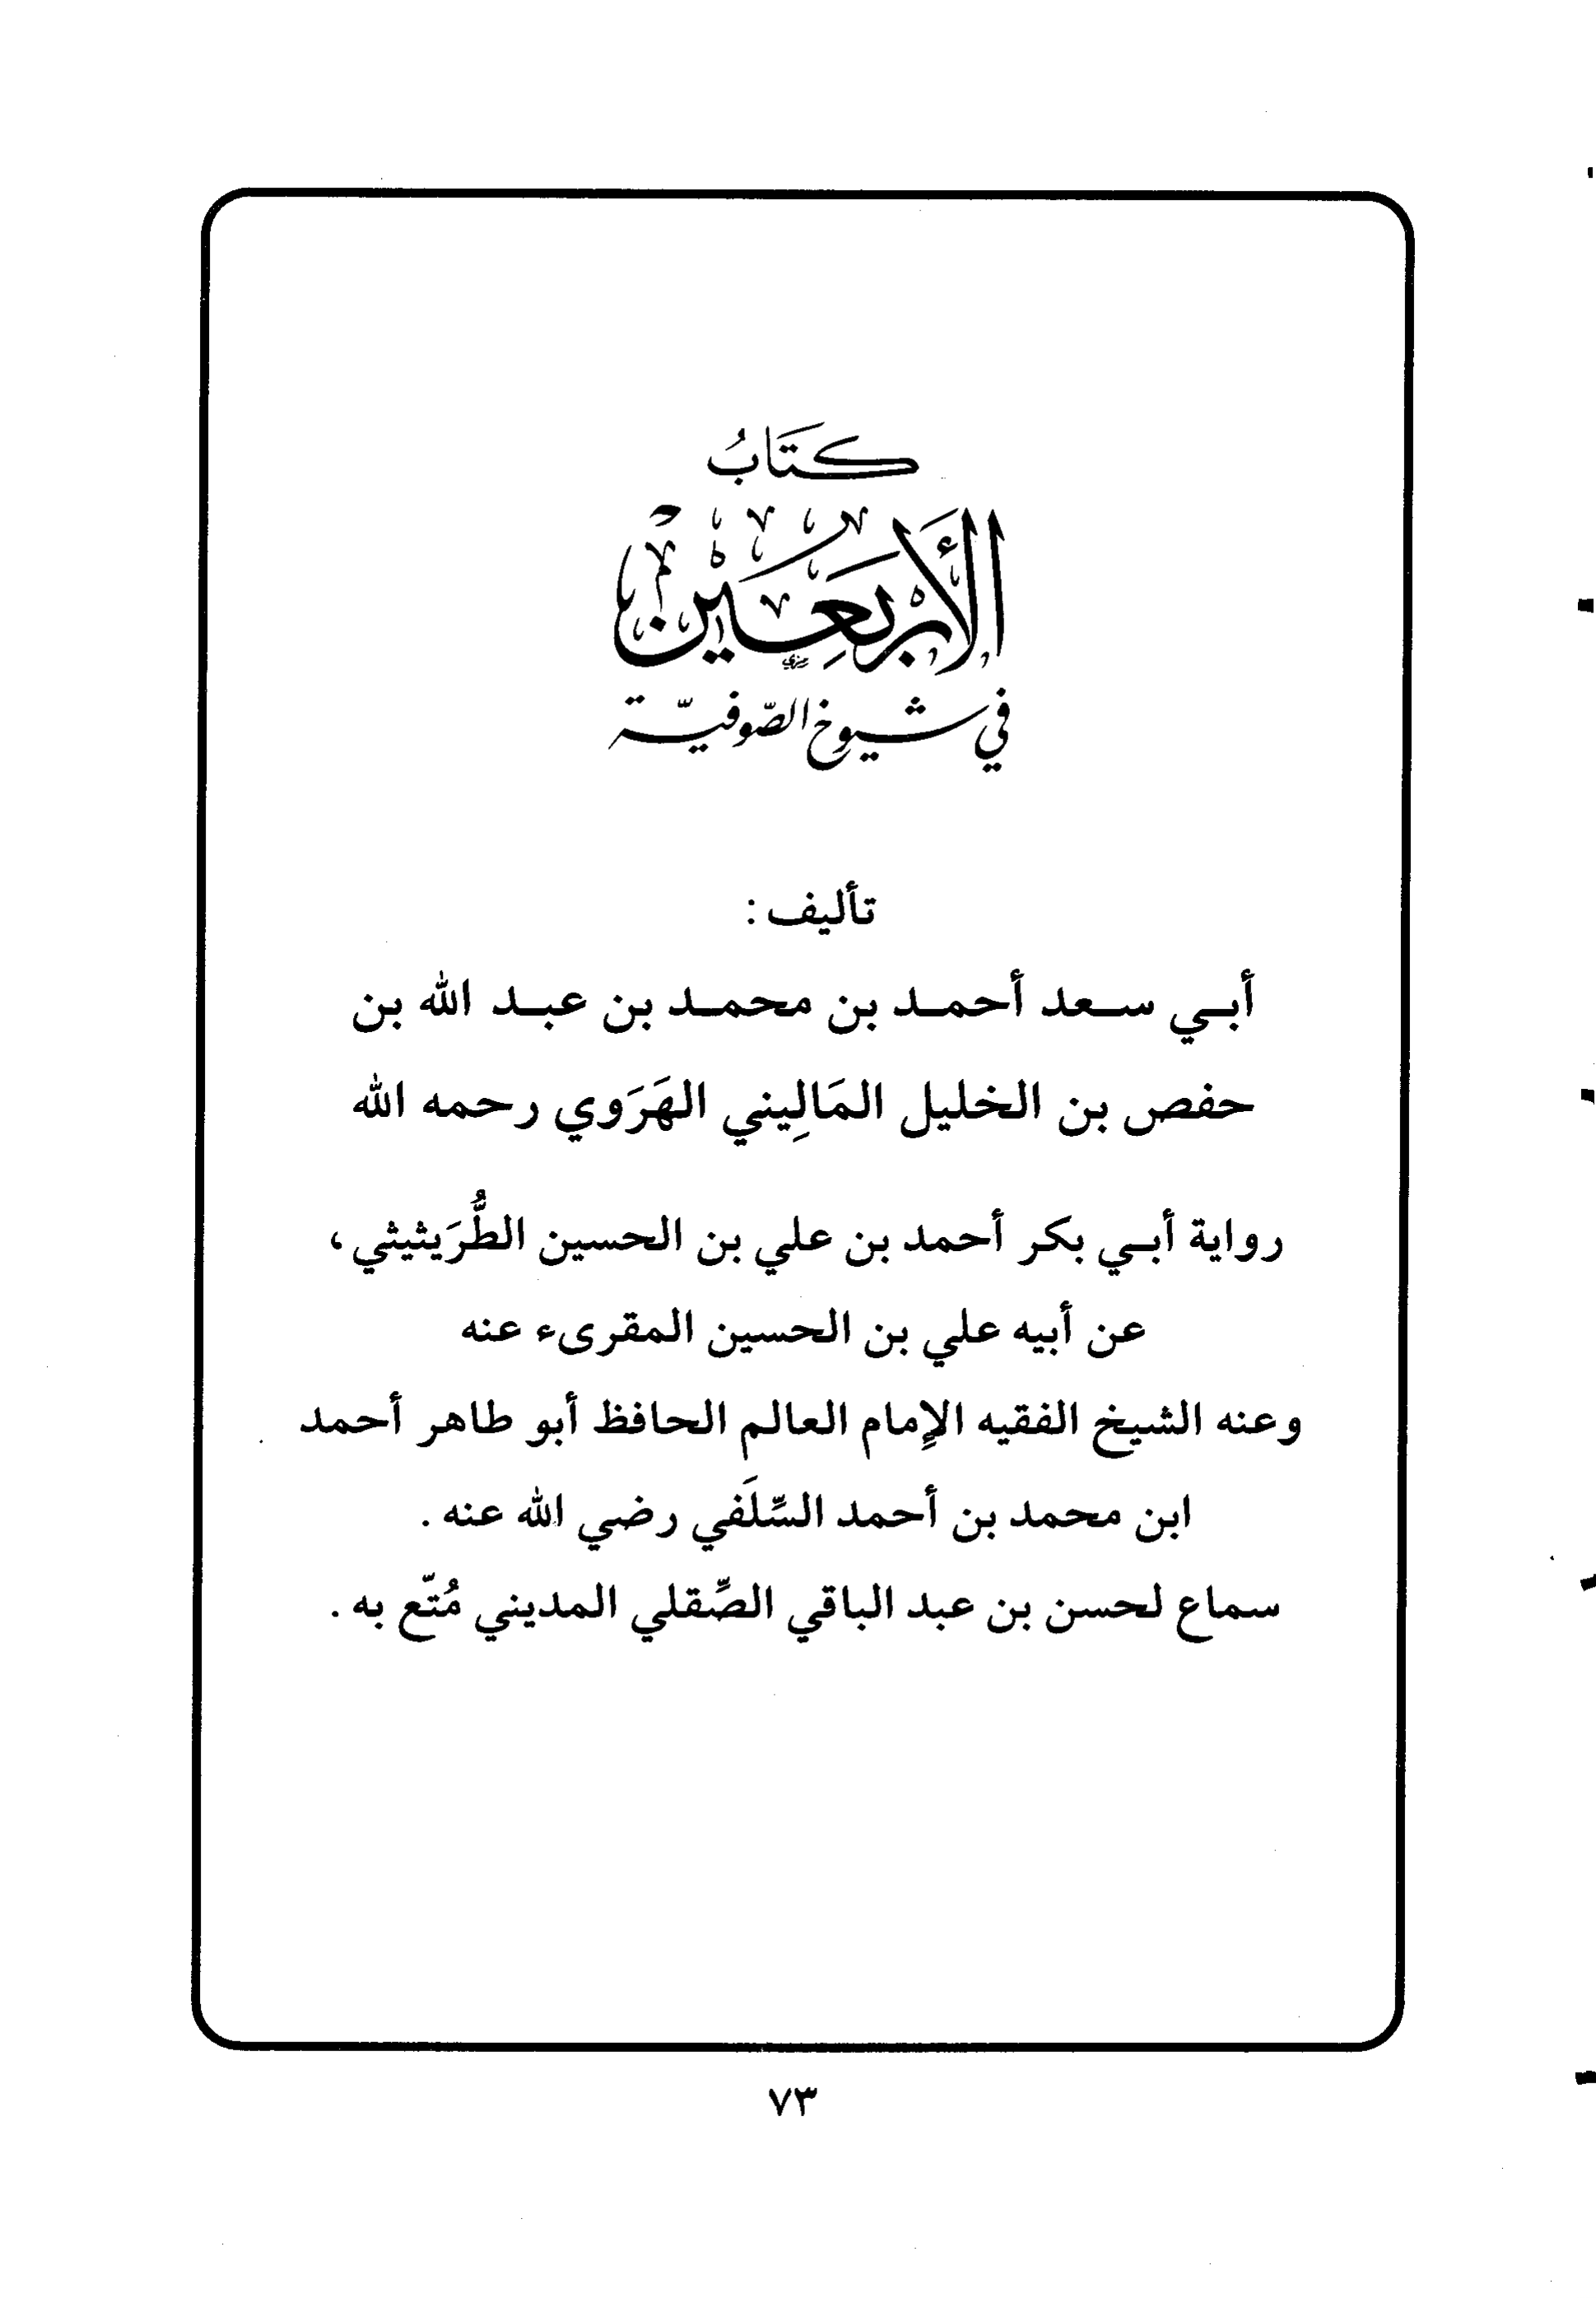 كتَابُ
الأَرْبَعِيْن
في شيوخ الصّوفيّة
تأليف :
أبي سعد أحمد بن محمد بن عبد الله بن
حفص بن الخليل المَالِيني الهَرَوي رحمه الله
رواية أبي بكر أحمد بن علي بن الحسين الطُّرَيثيثي ،
عن أبيه علي بن الحسين المقرىء عنه
وعنه الشيخ الفقيه الإمام العالم الحافظ أبو طاهر أحمد
ابن محمد بن أحمد السِّلَفي رضي الله عنه .
سماع لحسن بن عبد الباقي الصِّقلي المديني مُتّع به .
٧٣